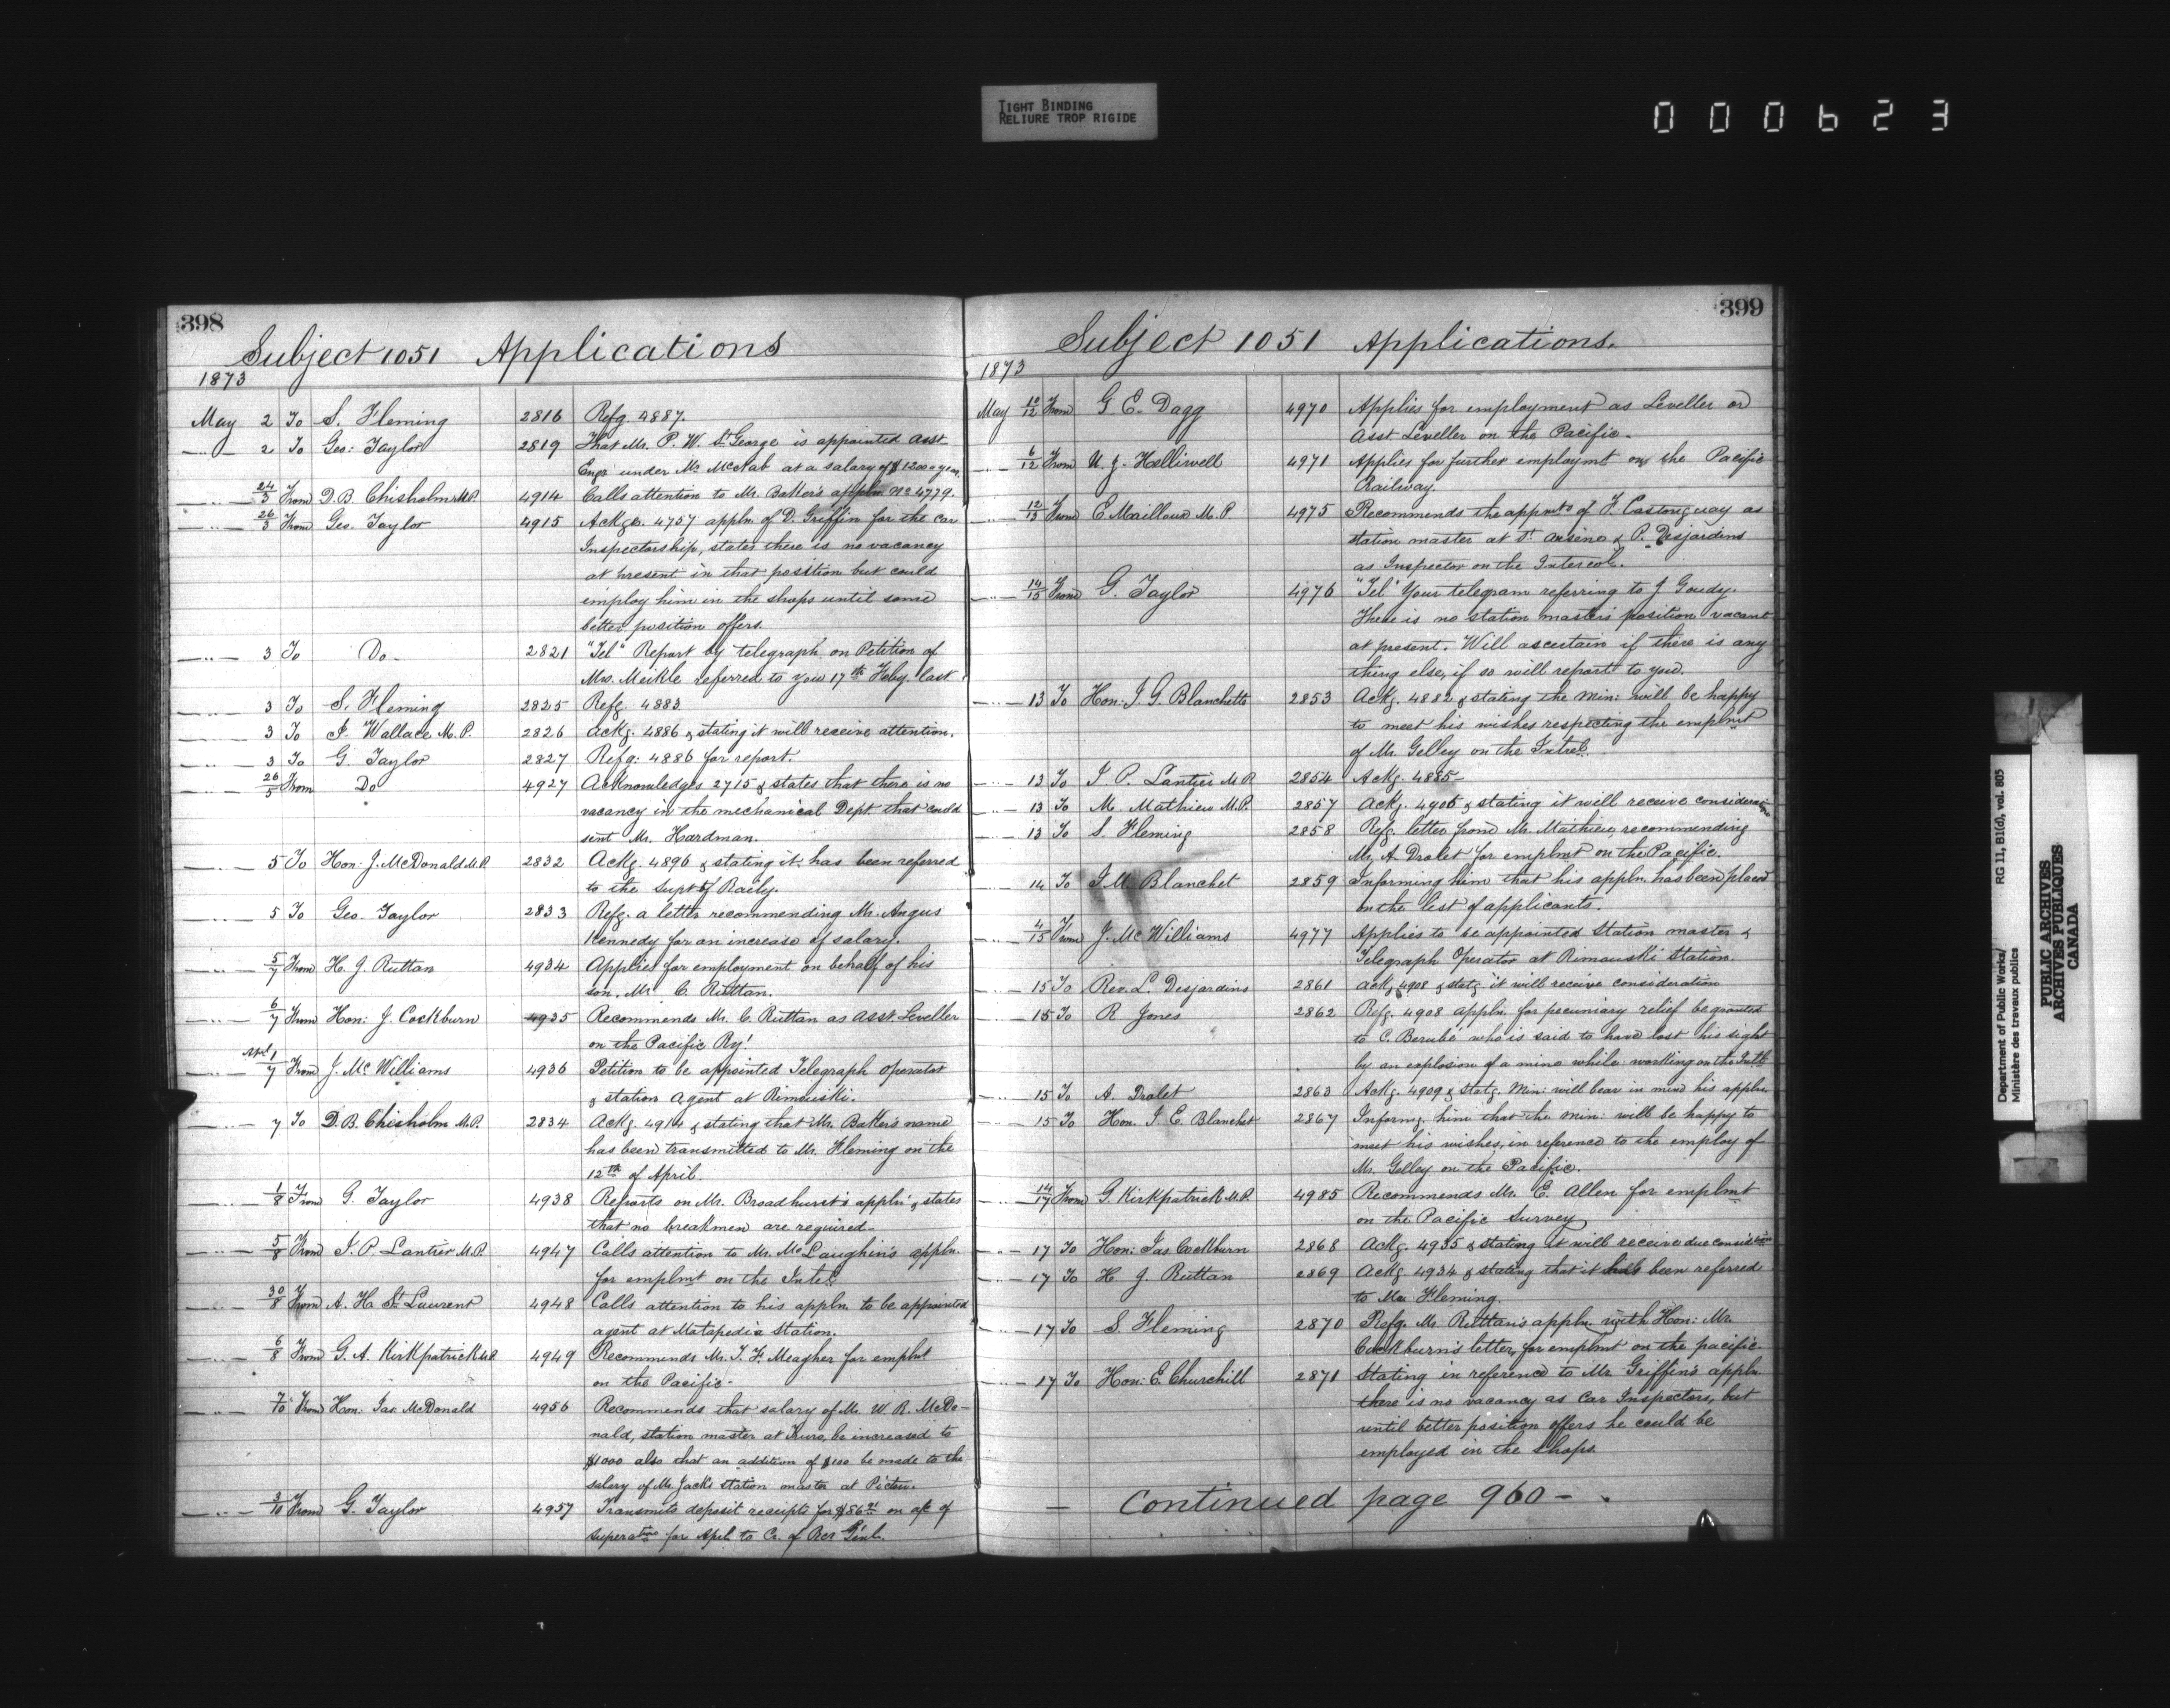 TIGHT BINDING
RELIURE TROP RIGIDE
000623
398
Subject 1051 Applications
1873
May 2 To S. Fleming 2816 Refg. 4887.
2 To Geo: Taylor 2819 That Mr. P. W. St George is appointed asst
Engr under Mr McNab at a salary of $1200 a year.
24/3 From D. B. Chisholm M.P. 4914 Calls attention to Mr. Baker's appln No 4779.
26/3 From Geo. Taylor 4915 Ackgs. 4757 appln. of D. Griffin for the car
Inspectorship, states there is no vacancy
at present in that position but could
employ him in the shops until some
better position offers.
3 To Do - 2821 "Tel" Report by telegraph on Petition of
Mrs. Meikle referred to you 17th Feby. last.
3 To S. Fleming 2825 Refg. 4883
3 To Wallace M.P. 2826 Ackg. 4886 & stating it will receive attention.
3 To G. Taylor 2827 Refg: 4886 for report.
26/5 From Do 4927 Acknowledges 2715 & states that there is no
vacancy in the mechanical Dept. that could
Mr. Hardman.
5 To Hon: J. McDonald M.P. 2832 Ackg. 4896 & stating it has been referred
to the Supt of Raily.
5 To Geo. Taylor 2833 Refg. a letter recommending Mr. Angus
Kennedy for an increase of salary.
5/7 From H. J. Ruttan 4934 Applies for employment on behalf of his
son, Mr. C. Ruttan.
6/7 From Hon: J. Cockburn 4935 Recommends Mr. C. Ruttan as asst. Leveller
on the Pacific Ry!
1/7 From J. McWilliams 4936 Petition to be appointed Telegraph operator
& station Agent at Rimouski.
7 To D. B. Chisholm M.P. 2834 Ackg. 4914 & stating that Mr. Baker's name
has been transmitted to Mr. Fleming on the
12th of April.
1/8 From G. Taylor 4938 Reports on Mr. Broadhurst's appln. & states
that no breakmen are required -
5/8 From J. P. Lantier M.P. 4947 Calls attention to Mr. McLaughin's appln.
for emplmt on the Intel.
30/8 From A. H. St Laurent 4948 Calls attention to his appln. to be appointed
agent at Matapedia Station.
6/8 From G. A. Kirkpatrick M.P. 4949 Recommends Mr. T. F. Meagher for emplmt
on the Pacific -
7/10 From Hon: Jas McDonald 4956 Recommends that salary of Mr. W. R. McDo-
nald, station master at Truro, be increased to
$1000 also that an addition of $100 be made to the
salary of Mr. Jacks station master at Pictou.
3/10 From G. Taylor 4957 Transmits deposit receipts for on a/c of
for Apl. to Cr. of Rcr Genl.
399
Subject 1051 Applications.
1873
May 10/12 From G. E. Dagg 4970 Applies for employment as Leveller or
Asst Leveller on the Pacific.
6/12 From N. J. Halliwell 4971 Applies for further employmt on the Pacific
Railway.
12/13 From E Mailloux M.P 4975 Recommends the appnts of F. Castonguay as
station master at St Arsene & P. Desjardins
as Inspector on the Intercol.
14/15 From G. Taylor 4976 "Tel" Your telegram referring to J Goudy.
There is no station masters position vacant
at present. Will ascertain if there is any
thing else, if so will report to you.
13 To Hon: J. G. Blanchette 2853 Ackg. 4882 & stating the Min: will be happy
to meet his wishes respecting the emplmt
of Mr. Gelley on the Intrcl.
13 To J. P. Lantier M.P. 2854 Ackg. 4885 -
13 To M. Mathieu M.P. 2857 Ackg. 4906 & stating it will receive consideration
13 To S. Fleming 2858 Refg. letter from Mr. Mathieu, recommending
Mr. A. Drolet for emplmt on the Pacific.
14 To Blanchet 2859 Informing him that his appln. has been placed
on the list of applicants.
4/15 From J. McWilliams 4977 Applies to be appointed Station master &
Telegraph Operator at Rimouski Station.
15 To Rev. L. Desjardins 2861 Ackg 4908 & statg it will receive consideration
15 To R Jones 2862 Refg. 4908 appln. for pecuniary relief be granted
to C. Berubé who is said to have lost his sight
by an explosion of a mine while working on the Intl.
15 To A. Drolet 2863 Ackg. 4909 & statg. Min: will bear in mind his appln.
15 To Hon. J. E. Blanchet 2867 Informg. him that the Min: will be happy to
meet his wishes, in reference to the employ of
Mr. Gelley on the Pacific.
14/17 From G. Kirkpatrick M.P. 4985 Recommends Mr. E. Allen for emplmt
on the Pacific Survey
17 To Hon: Jas. Cockburn 2868 Ackg. 4935 & stating it will receive due consideration
17 To H. J. Ruttan 2869 Ackg 4934 & stating that it has been referred
to Mr. Fleming.
17 To S. Fleming 2870 Refg. Mr. Ruttan's appln. with Hon: Mr.
Cockburn's letter, for emplmt on the pacific.
17 To Hon: E. Churchill 2871 Stating in reference to Mr. Griffin's appln.
there is no vacancy as Car Inspectors, but
until better position offers he could be
employed in the Shops.
— Continued page 960 —
Department of Public Works/ RG 11, B1(d), vol. 805
Ministère des travaux publics
PUBLIC ARCHIVES
ARCHIVES PUBLIQUES
CANADA